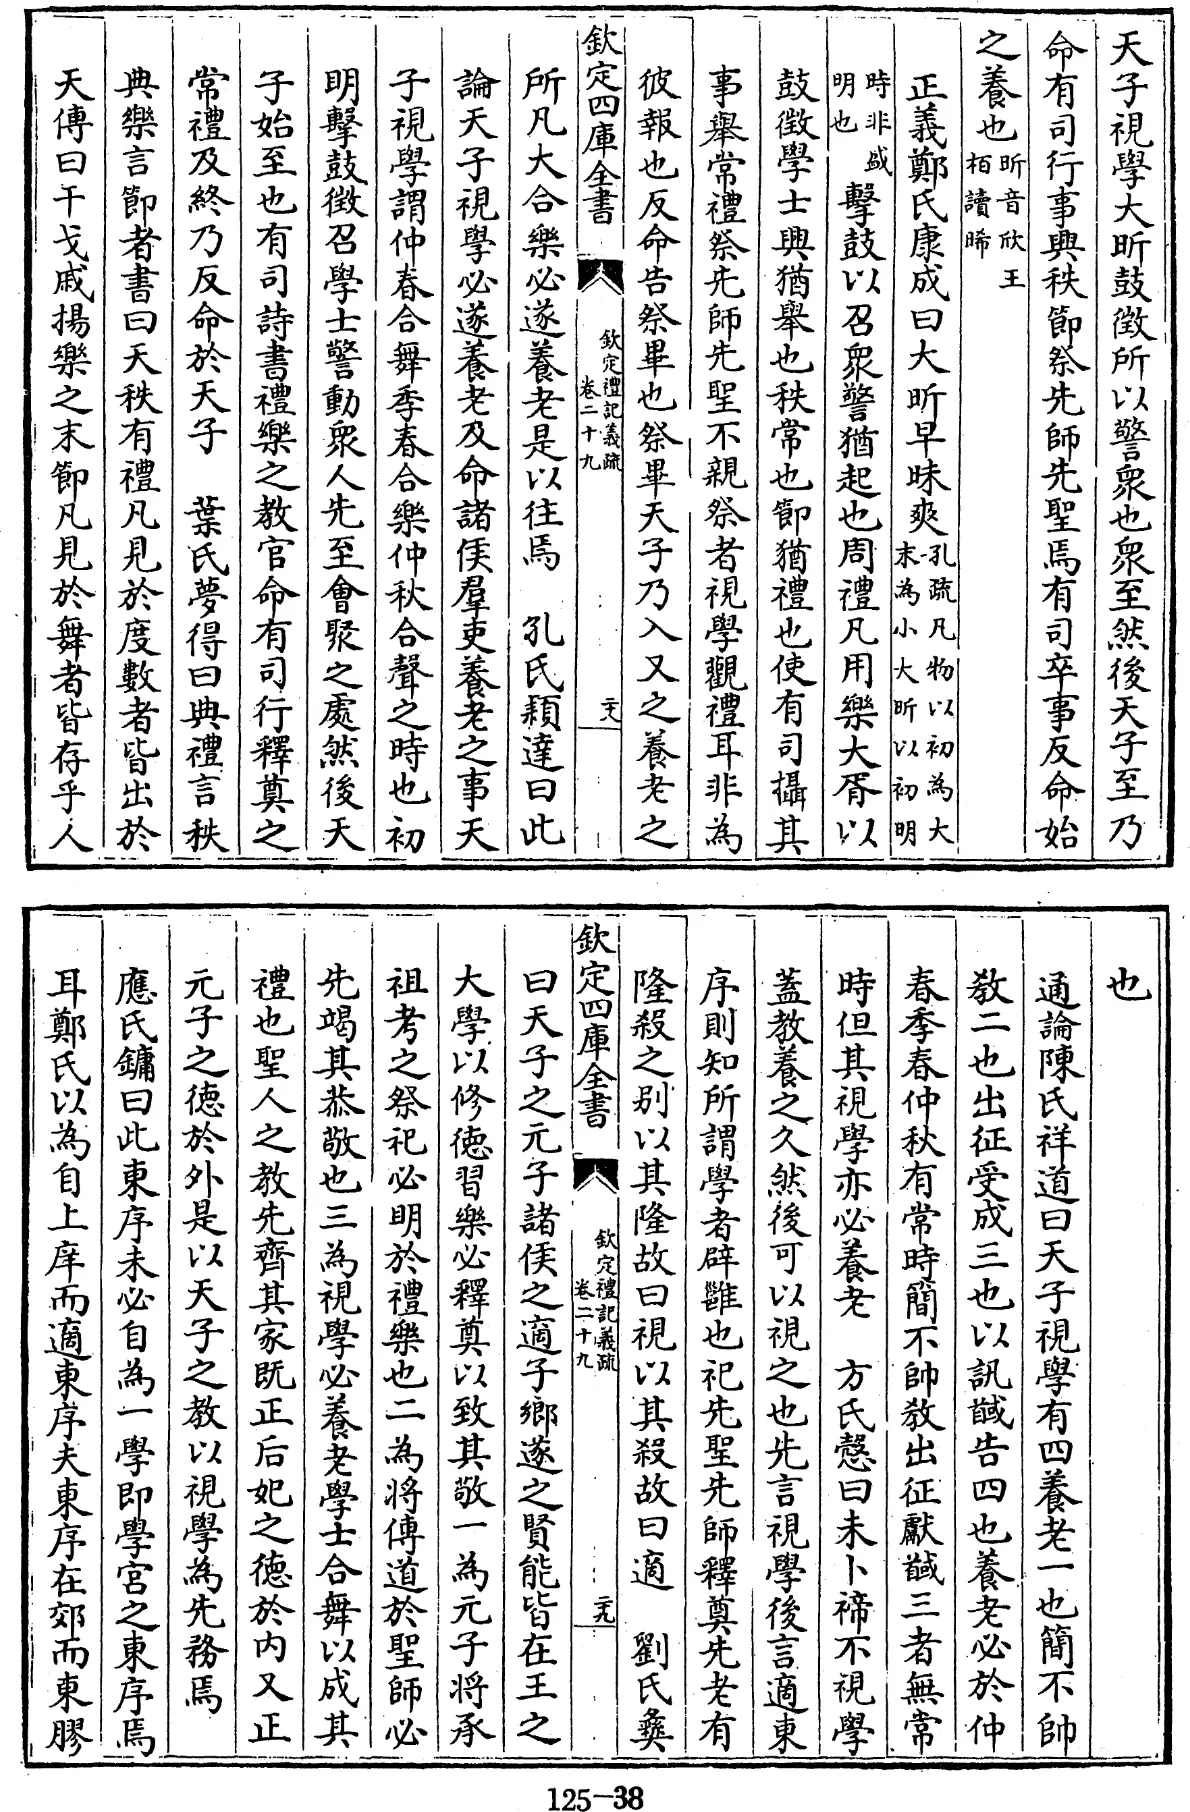 天子視學大昕鼓徵所以警衆也衆至然後天子至乃
命有司行事興秩節祭先師先聖焉有司卒事反命始
之養也昕音欣王
栢讀晞
正義鄭氏康成曰大昕早昧爽孔疏凡物以初為大
末為小大昕以初明
時非盛
明也擊鼓以召衆警猶起也周禮凡用樂大胥以
鼓徵學士興猶舉也秩常也節猶禮也使有司攝其
事舉常禮祭先師先聖不親祭者視學觀禮耳非為
彼報也反命告祭畢也祭畢天子乃入又之養老之
欽定四庫全書
欽定禮記義疏
卷二十九
二十八
所凡大合樂必遂養老是以往焉 孔氏穎達曰此
論天子視學必遂養老及命諸侯羣吏養老之事天
子視學謂仲春合舞季春合樂仲秋合聲之時也初
明擊鼓徵召學士警動衆人先至會聚之處然後天
子始至也有司詩書禮樂之教官命有司行釋奠之
常禮及終乃反命於天子 葉氏夢得曰典禮言秩
典樂言節者書曰天秩有禮凡見於度數者皆出於
天傳曰干戈戚揚樂之末節凡見於舞者皆存乎人
也
通論陳氏祥道曰天子視學有四養老一也簡不帥
教二也出征受成三也以訊馘告四也養老必於仲
春季春仲秋有常時簡不帥教出征獻馘三者無常
時但其視學亦必養老 方氏慤曰未卜禘不視學
蓋教養之久然後可以視之也先言視學後言適東
序則知所謂學者辟雝也祀先聖先師釋奠先老有
隆殺之別以其隆故曰視以其殺故曰適 劉氏彝
欽定四庫全書
欽定禮記義疏
卷二十九
二十九
曰天子之元子諸侯之適子鄉遂之賢能皆在王之
大學以修德習樂必釋奠以致其敬一為元子將承
祖考之祭祀必明於禮樂也二為將傳道於聖師必
先竭其恭敬也三為視學必養老學士合舞以成其
禮也聖人之教先齊其家既正后妃之德於內又正
元子之德於外是以天子之教以視學為先務焉
應氏鏞曰此東序未必自為一學即學宮之東序焉
耳鄭氏以為自上庠而適東序夫東序在郊而東膠
125-38